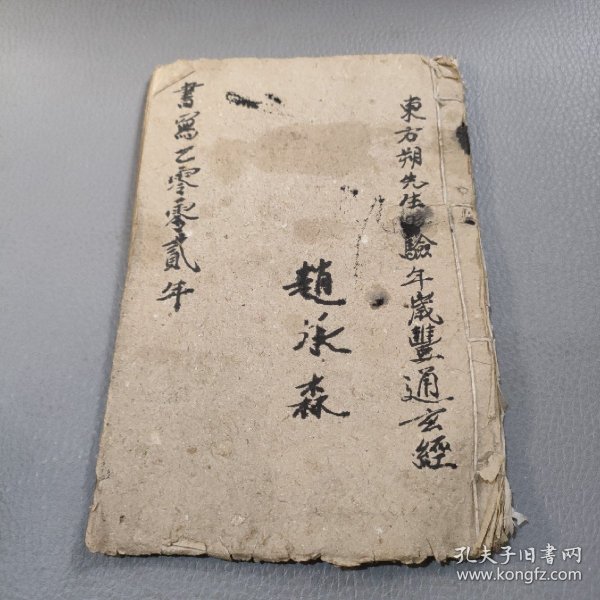 東方朔先生 驗年歲豐通玄經
趙永森
書寫乙零零貳年
孔夫子旧書网
www.kongfz.com